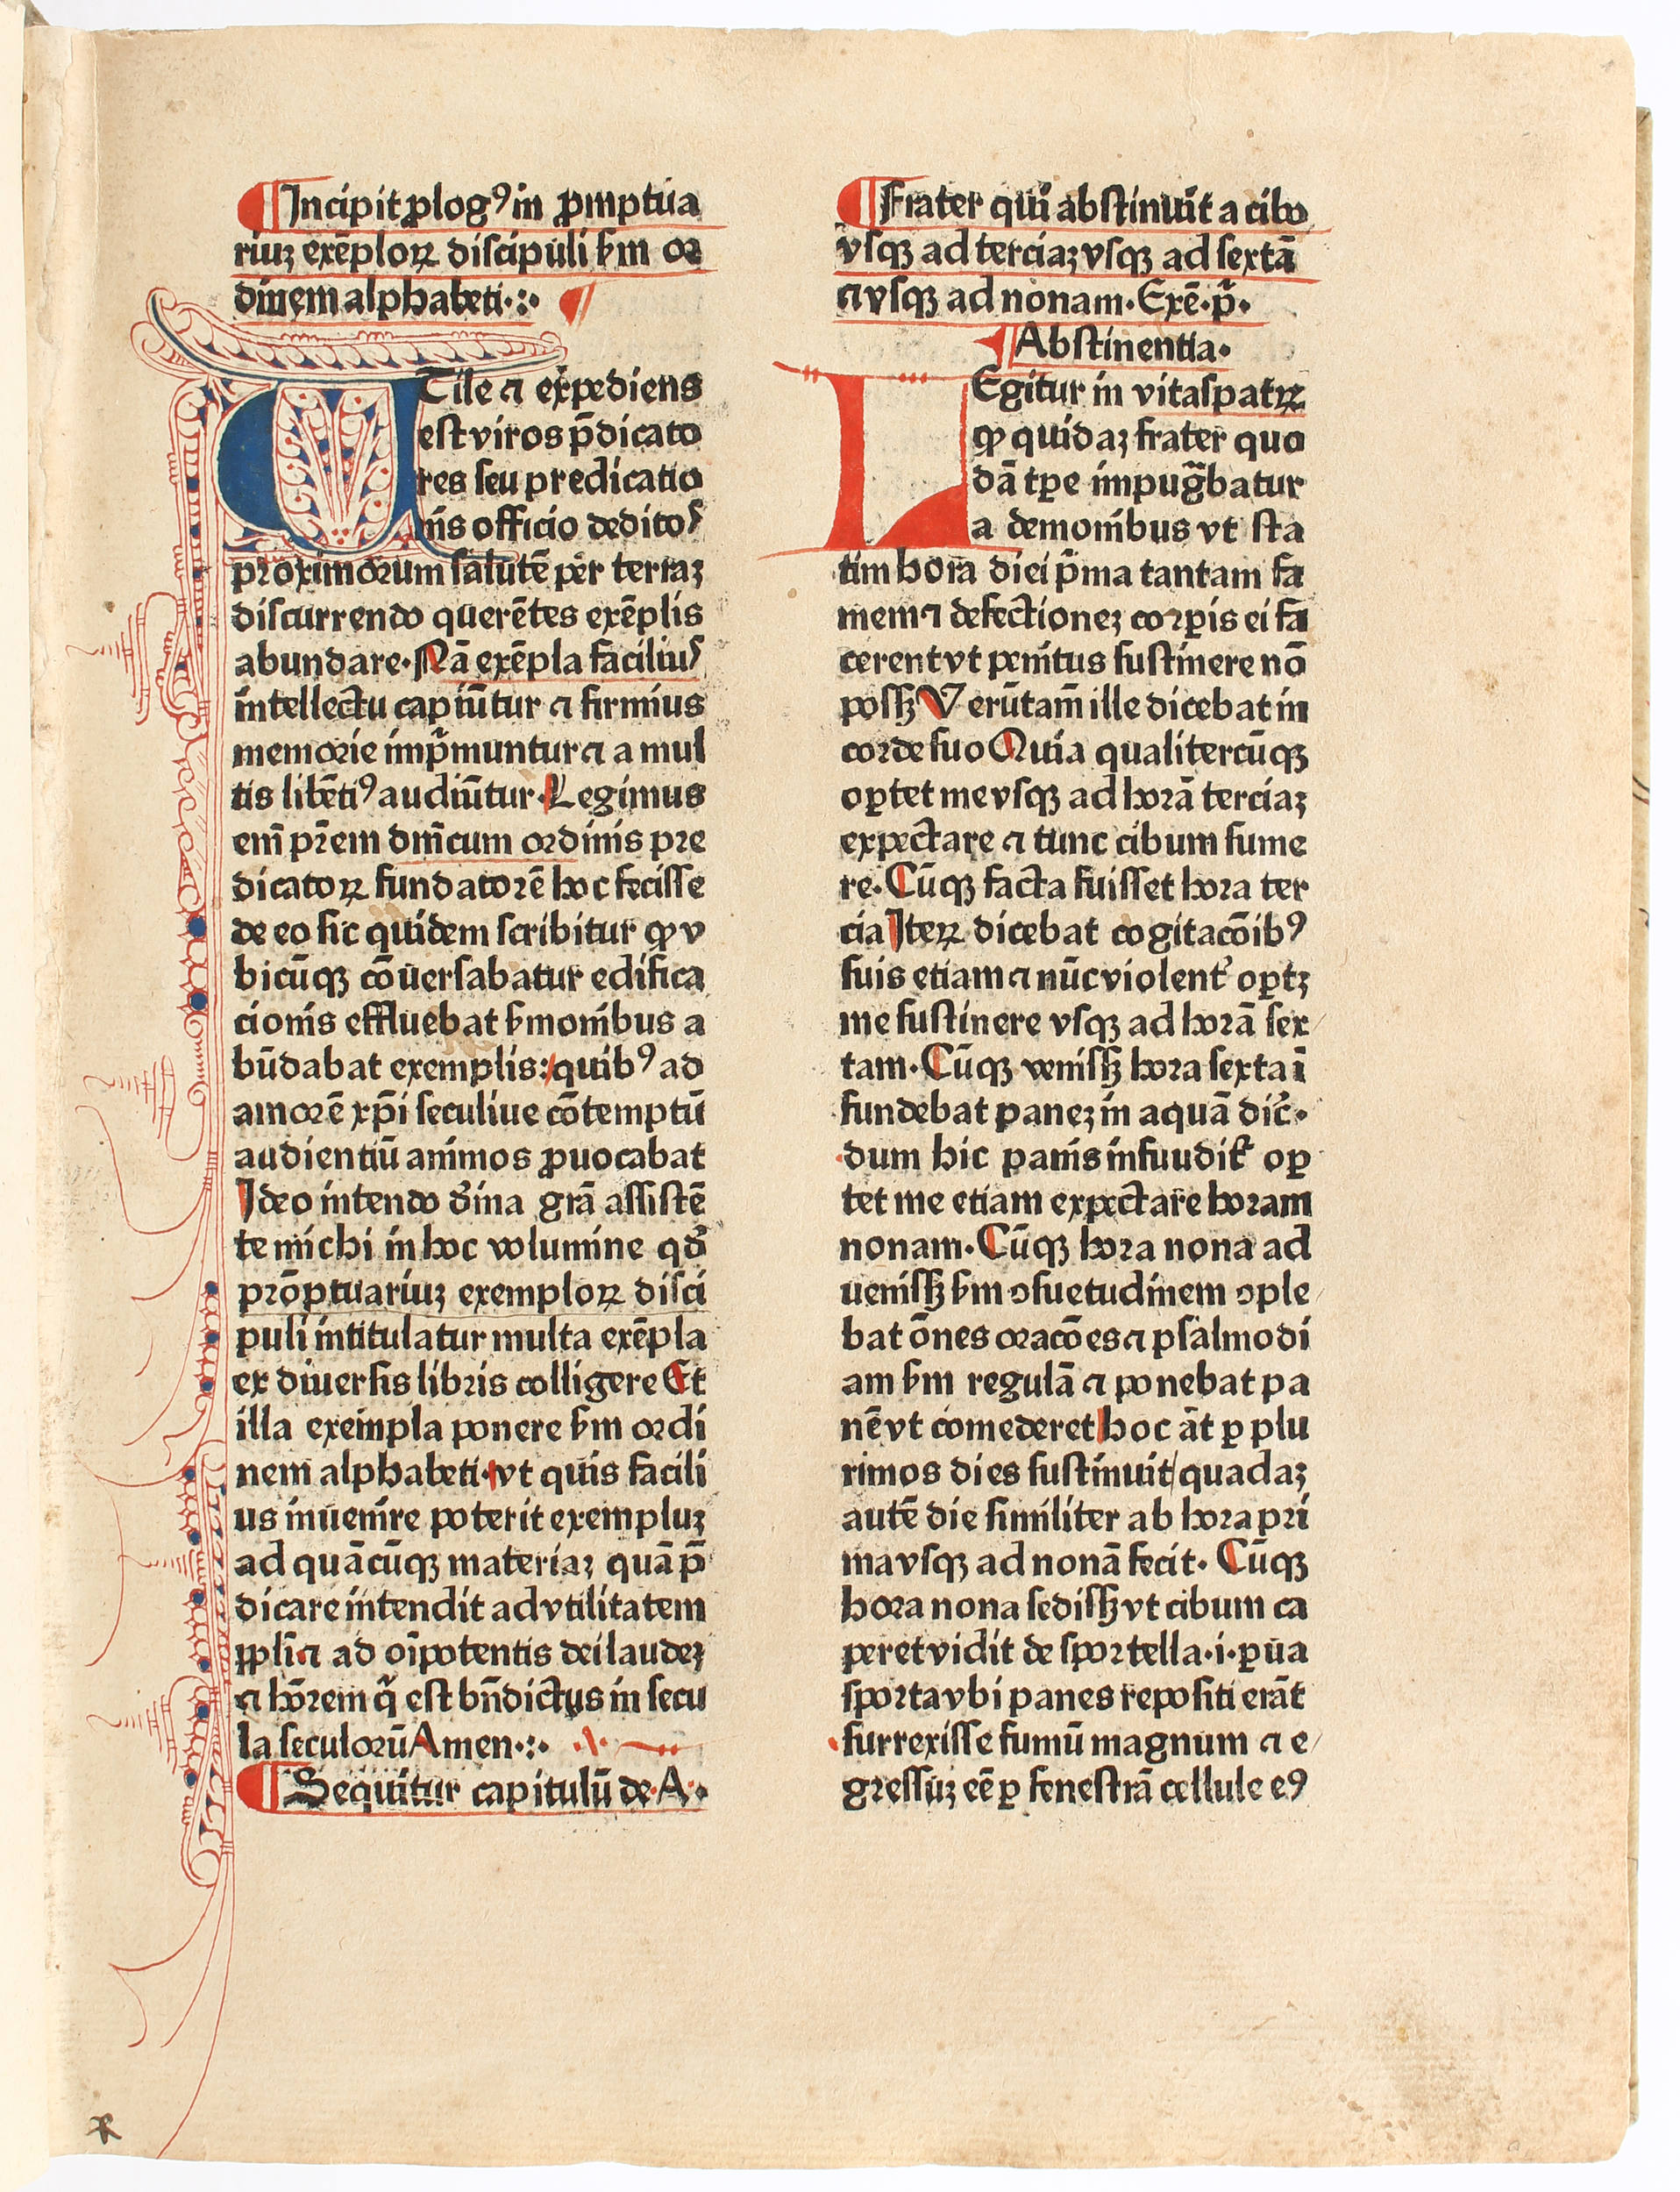 Incipit ꝓlogꝰ in ꝓmptua
riuꝫ exēploꝝ discipuli ẜm or
dinem alphabeti.:.
UTile ⁊ expediens
est viros p̄dicato
res seu predicatio
nis officio deditos
proximorum salutē per terraꝫ
discurrendo querētes exēplis
abundare. Nā exēpla facilius
intellectu capiūtur ⁊ firmius
memorie imp̄muntur ⁊ a mul
tis libētiꝰ audiūtur. Legimus
eni᷒m pr̄em dn̄icum ordinis pre
dicatoꝝ fundatorē hoc fecisse
de eo sic quidem scribitur ꝙ v
bicūqꝫ cōuersabatur edifica
cionis effluebat ẜmonibus a
būdabat exemplis: quibꝰ ad
amorē xp̄i seculiue cōtemptū
audientiū animos ꝓuocabat
Ideo intendo diīna grā assistē
te michi in hoc volumine qd̄
prōptuariuꝫ exemploꝝ disci
puli intitulatur multa exēpla
ex diuersis libris colligere Et
illa exempla ponere ẜm ordi
nem alphabeti. vt quis facili
us inuenire poterit exempluꝫ
ad quācūqꝫ materiaꝫ quā p̄
dicare intendit ad vtilitatem
ppl̄i ⁊ ad oīpotentis dei laudeꝫ
⁊ hōrem q̄ est bn̄dictus in secu
la seculorū Amen.:.
Sequitur capitulū de. A.
Frater qui abstinuit a cibo
vsqꝫ ad terciaꝫ vsqꝫ ad sextā
⁊ vsqꝫ ad nonam. Exē. p̄.
Abstinentia.
LEgitur in vitaspatꝝ
ꝙ quidaꝫ frater quo
dā tꝑe impug̃batur
a demonibus vt sta
tim hora diei p̄ma tantam fa
mem ⁊ defectioneꝫ corꝑis ei fa
cerent vt penitus sustinere nō
possꝫ Verūtam̄ ille dicebat in
corde suo Quia qualitercūqꝫ
oꝑtet me vsqꝫ ad horā terciaꝫ
expectare ⁊ tunc cibum sume
re. Cūqꝫ facta fuisset hora ter
cia Iteꝝ dicebat cogitacōibꝰ
suis etiam ⁊ nūc violent᷒ oꝑtꝫ
me sustinere vsqꝫ ad horā sex
tam. Cūqꝫ venissꝫ hora sexta ī
fundebat paneꝫ in aquā dic̄.
dum hic panis infuudit᷒ oꝑ
tet me etiam expectare horam
nonam. Cūqꝫ hora nona ad
uenissꝫ ẜm ꝯsuetudinem ꝯple
bat ōnes oracōes ⁊ psalmodi
am ẜm regulā ⁊ ponebat pa
nē vt comederet hoc āt ꝑ plu
rimos dies sustinuit/ quadaꝫ
autē die similiter ab hora pri
ma vsqꝫ ad nonā fecit. Cūqꝫ
hora nona sedissꝫ vt cibum ca
peret vidit de sportella .i. ꝑua
sporta vbi panes repositi erāt
surrexisse fumū magnum ⁊ e
gressuꝫ eē ꝑ fenestrā cellule eꝰ